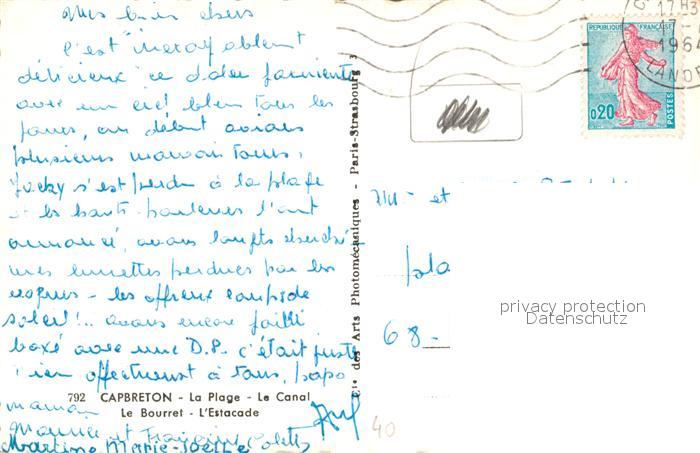 Mes bien chers
c'est incroyablement
délicieux ce dolce farniente
avec un ciel bleu tous les
jours, au début avions
plusieurs mauvais tours,
Jacky s'est perdu à la plage
et les hauts-parleurs l'ont
annoncé, avons longts cherché
mes lunettes perdues par les
vagues - les affreux coups de
soleil!.. avons encore failli
boxé avec une D.S. c'était juste
bien affectueust à tous, papo
maman
Maurice et Françoise Colette
Martine Marie-Joëlle
792 CAPBRETON - La Plage - Le Canal
Le Bourret - L'Estacade
Cie des Arts Photomécaniques - Paris-Strasbourg 3
17H3
17-
196
LANDE
REPUBLIQUE FRANÇAISE
0,20
POSTES
et
pla
68-
privacy protection
Datenschutz
40